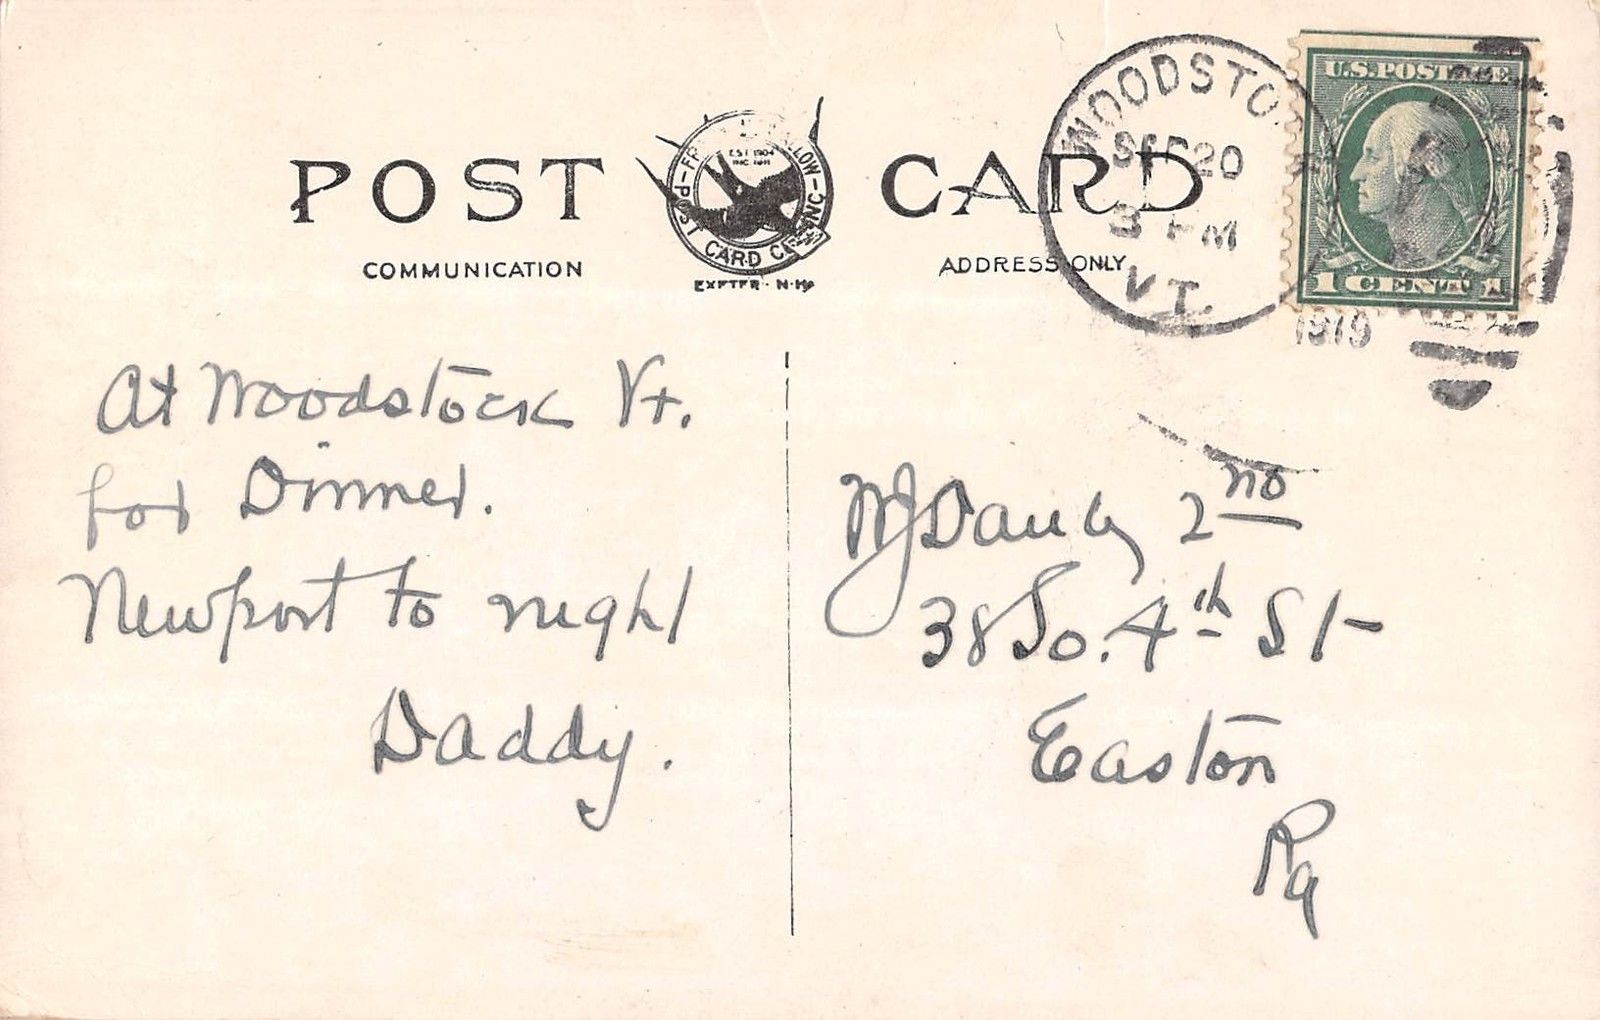 POST CARD
COMMUNICATION
ADDRESS ONLY
EST 1904
INC. 1911
POST CARD CO. INC.
EXETER - N.H.
WOODSTO
SEP 20
3 PM
VT.
1919
U.S. POSTAGE
1 CENT 1
At Woodstock Vt.
for Dinner.
Newport to night
Daddy.
2nd
38 So. 4th St
Easton
Pa